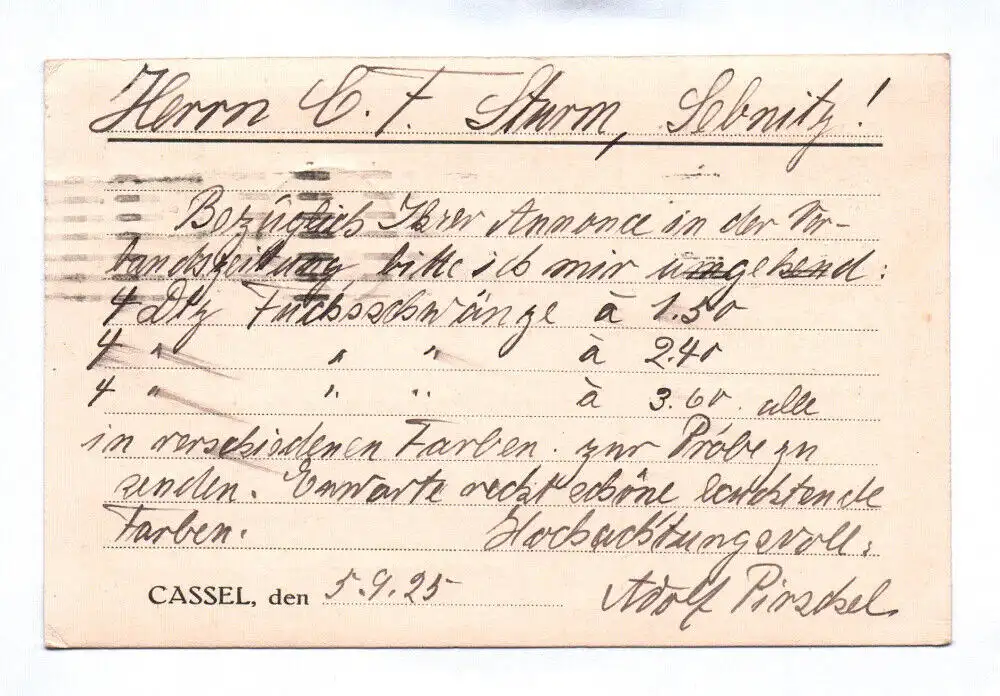 Herrn C. F. Sturm, Sebnitz!
Bezüglich Ihrer Annonce in der Ver-
bandszeitung bitte ich mir umgehend:
4 Dtz Fuchsschwänze à 1.50
4 " " " à 2.40
4 " " " à 3.60 alle
in verschiedenen Farben zur Probe zu
senden. Erwarte recht schöne leuchtende
Farben. Hochachtungsvoll:
CASSEL, den 5.9.25 Adolf Pirschel.